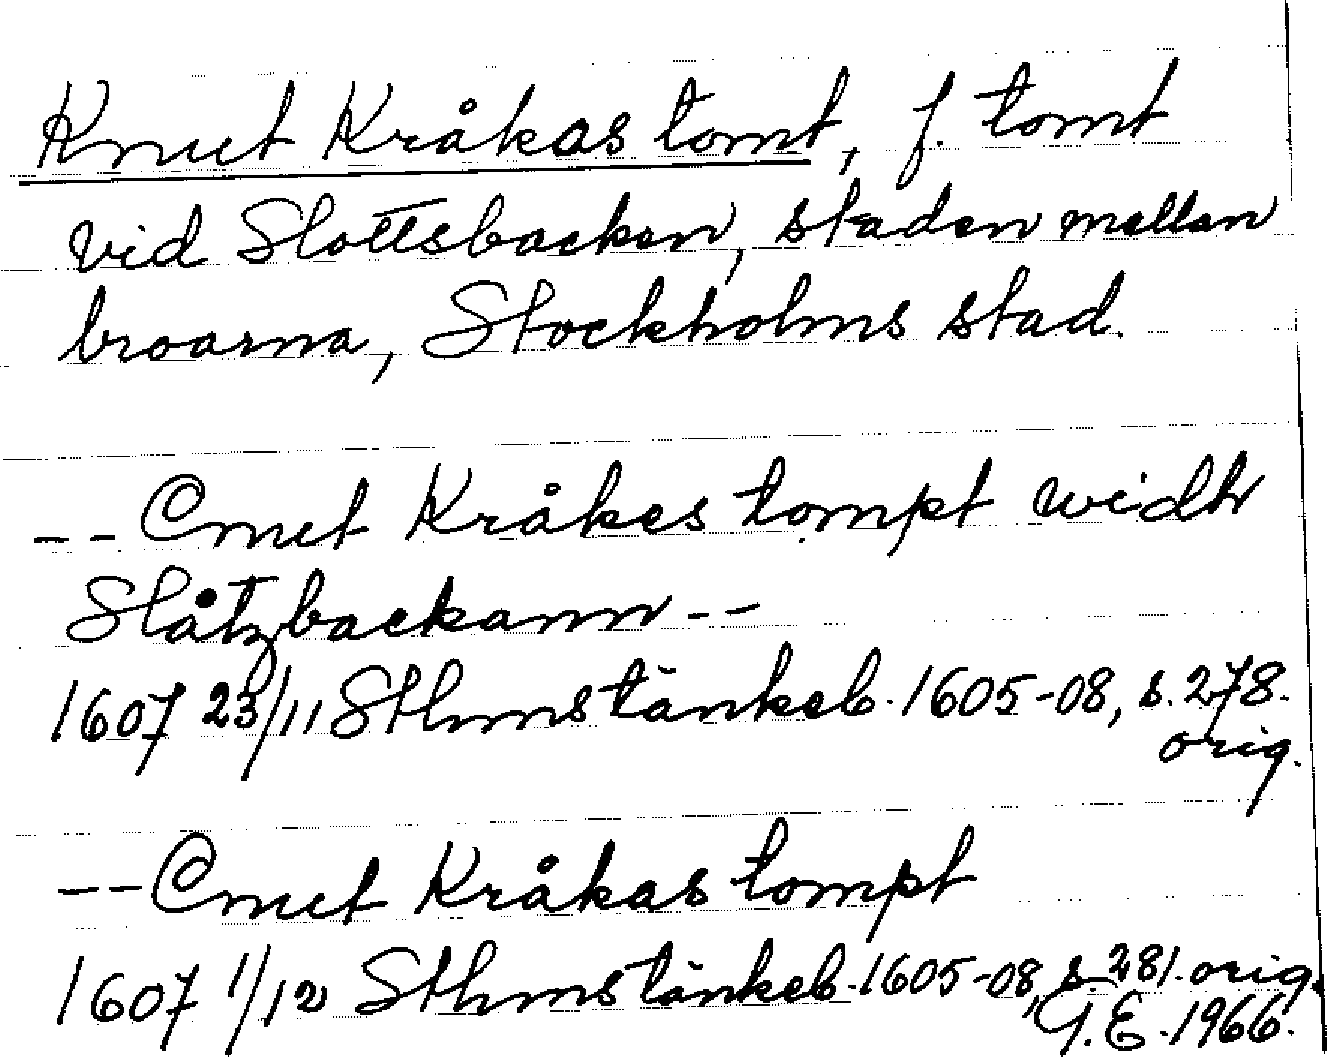 Knut Kråkas tomt, f. tomt
vid Slottsbacken, staden mellan
broarna, Stockholms stad.
-- Cnut Kråkes tompt widh
Slåtzbackann --
1607 23/11 Sthmstänkeb. 1605-08, s. 278.
orig.
-- Cnut Kråkas tompt
1607 1/12 Sthmstänkeb. 1605-08, s. 281. orig.
G.E. 1966.